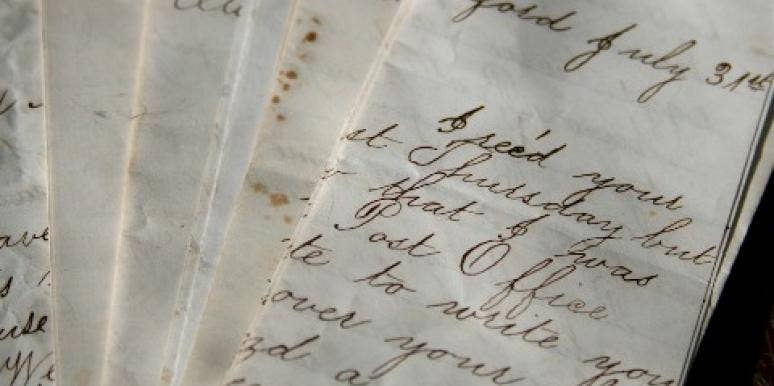 July 31st
I rec'd your
st Thursday but
that I was
Post Office
te to write you
over your
zd a
ave
s
use